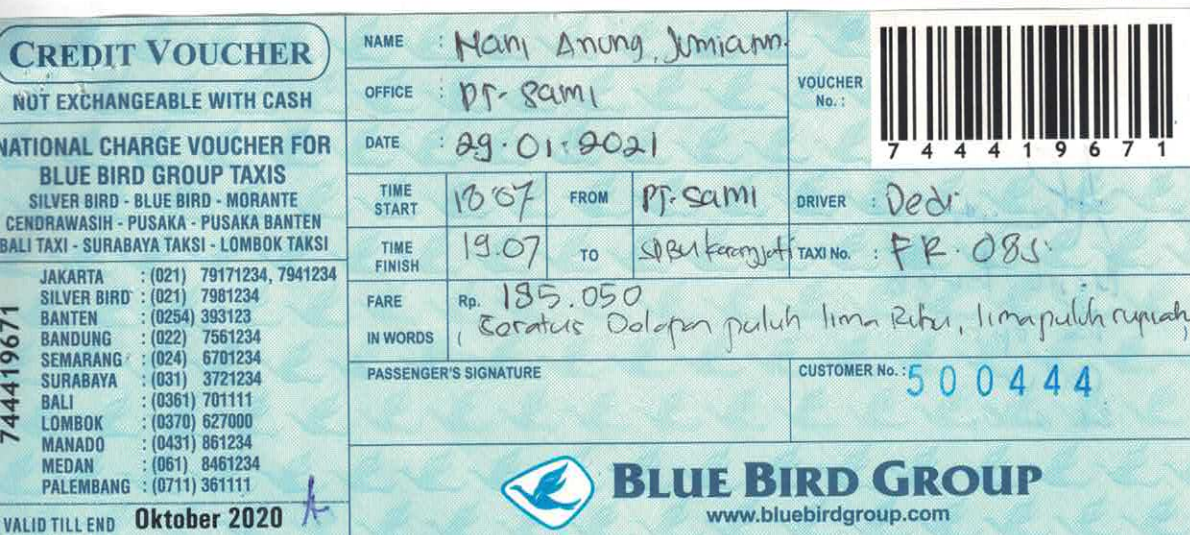 CREDIT VOUCHER
NOT EXCHANGEABLE WITH CASH
NATIONAL CHARGE VOUCHER FOR
BLUE BIRD GROUP TAXIS
SILVER BIRD - BLUE BIRD - MORANTE
CENDRAWASIH - PUSAKA - PUSAKA BANTEN
BALI TAXI - SURABAYA TAKSI - LOMBOK TAKSI
JAKARTA : (021) 79171234, 7941234
SILVER BIRD : (021) 7981234
BANTEN : (0254) 393123
BANDUNG : (022) 7561234
SEMARANG : (024) 6701234
SURABAYA : (031) 3721234
BALI : (0361) 701111
LOMBOK : (0370) 627000
MANADO : (0431) 861234
MEDAN : (061) 8461234
PALEMBANG : (0711) 361111
VALID TILL END Oktober 2020
744419671
NAME : Nani Anung, Jumiann.
OFFICE : PT. Sami
DATE : 29.01.2021
VOUCHER No. :
7 4 4 4 1 9 6 7 1
TIME START 18.07 FROM PT. Sami DRIVER : Dedi
TIME FINISH 19.07 TO SPBU Karangjati TAXI No. : FR. 085
FARE Rp. 185.050
IN WORDS ( Seratus Delapan puluh lima Ribu, lima puluh rupiah )
PASSENGER'S SIGNATURE
CUSTOMER No. : 500444
BLUE BIRD GROUP
www.bluebirdgroup.com